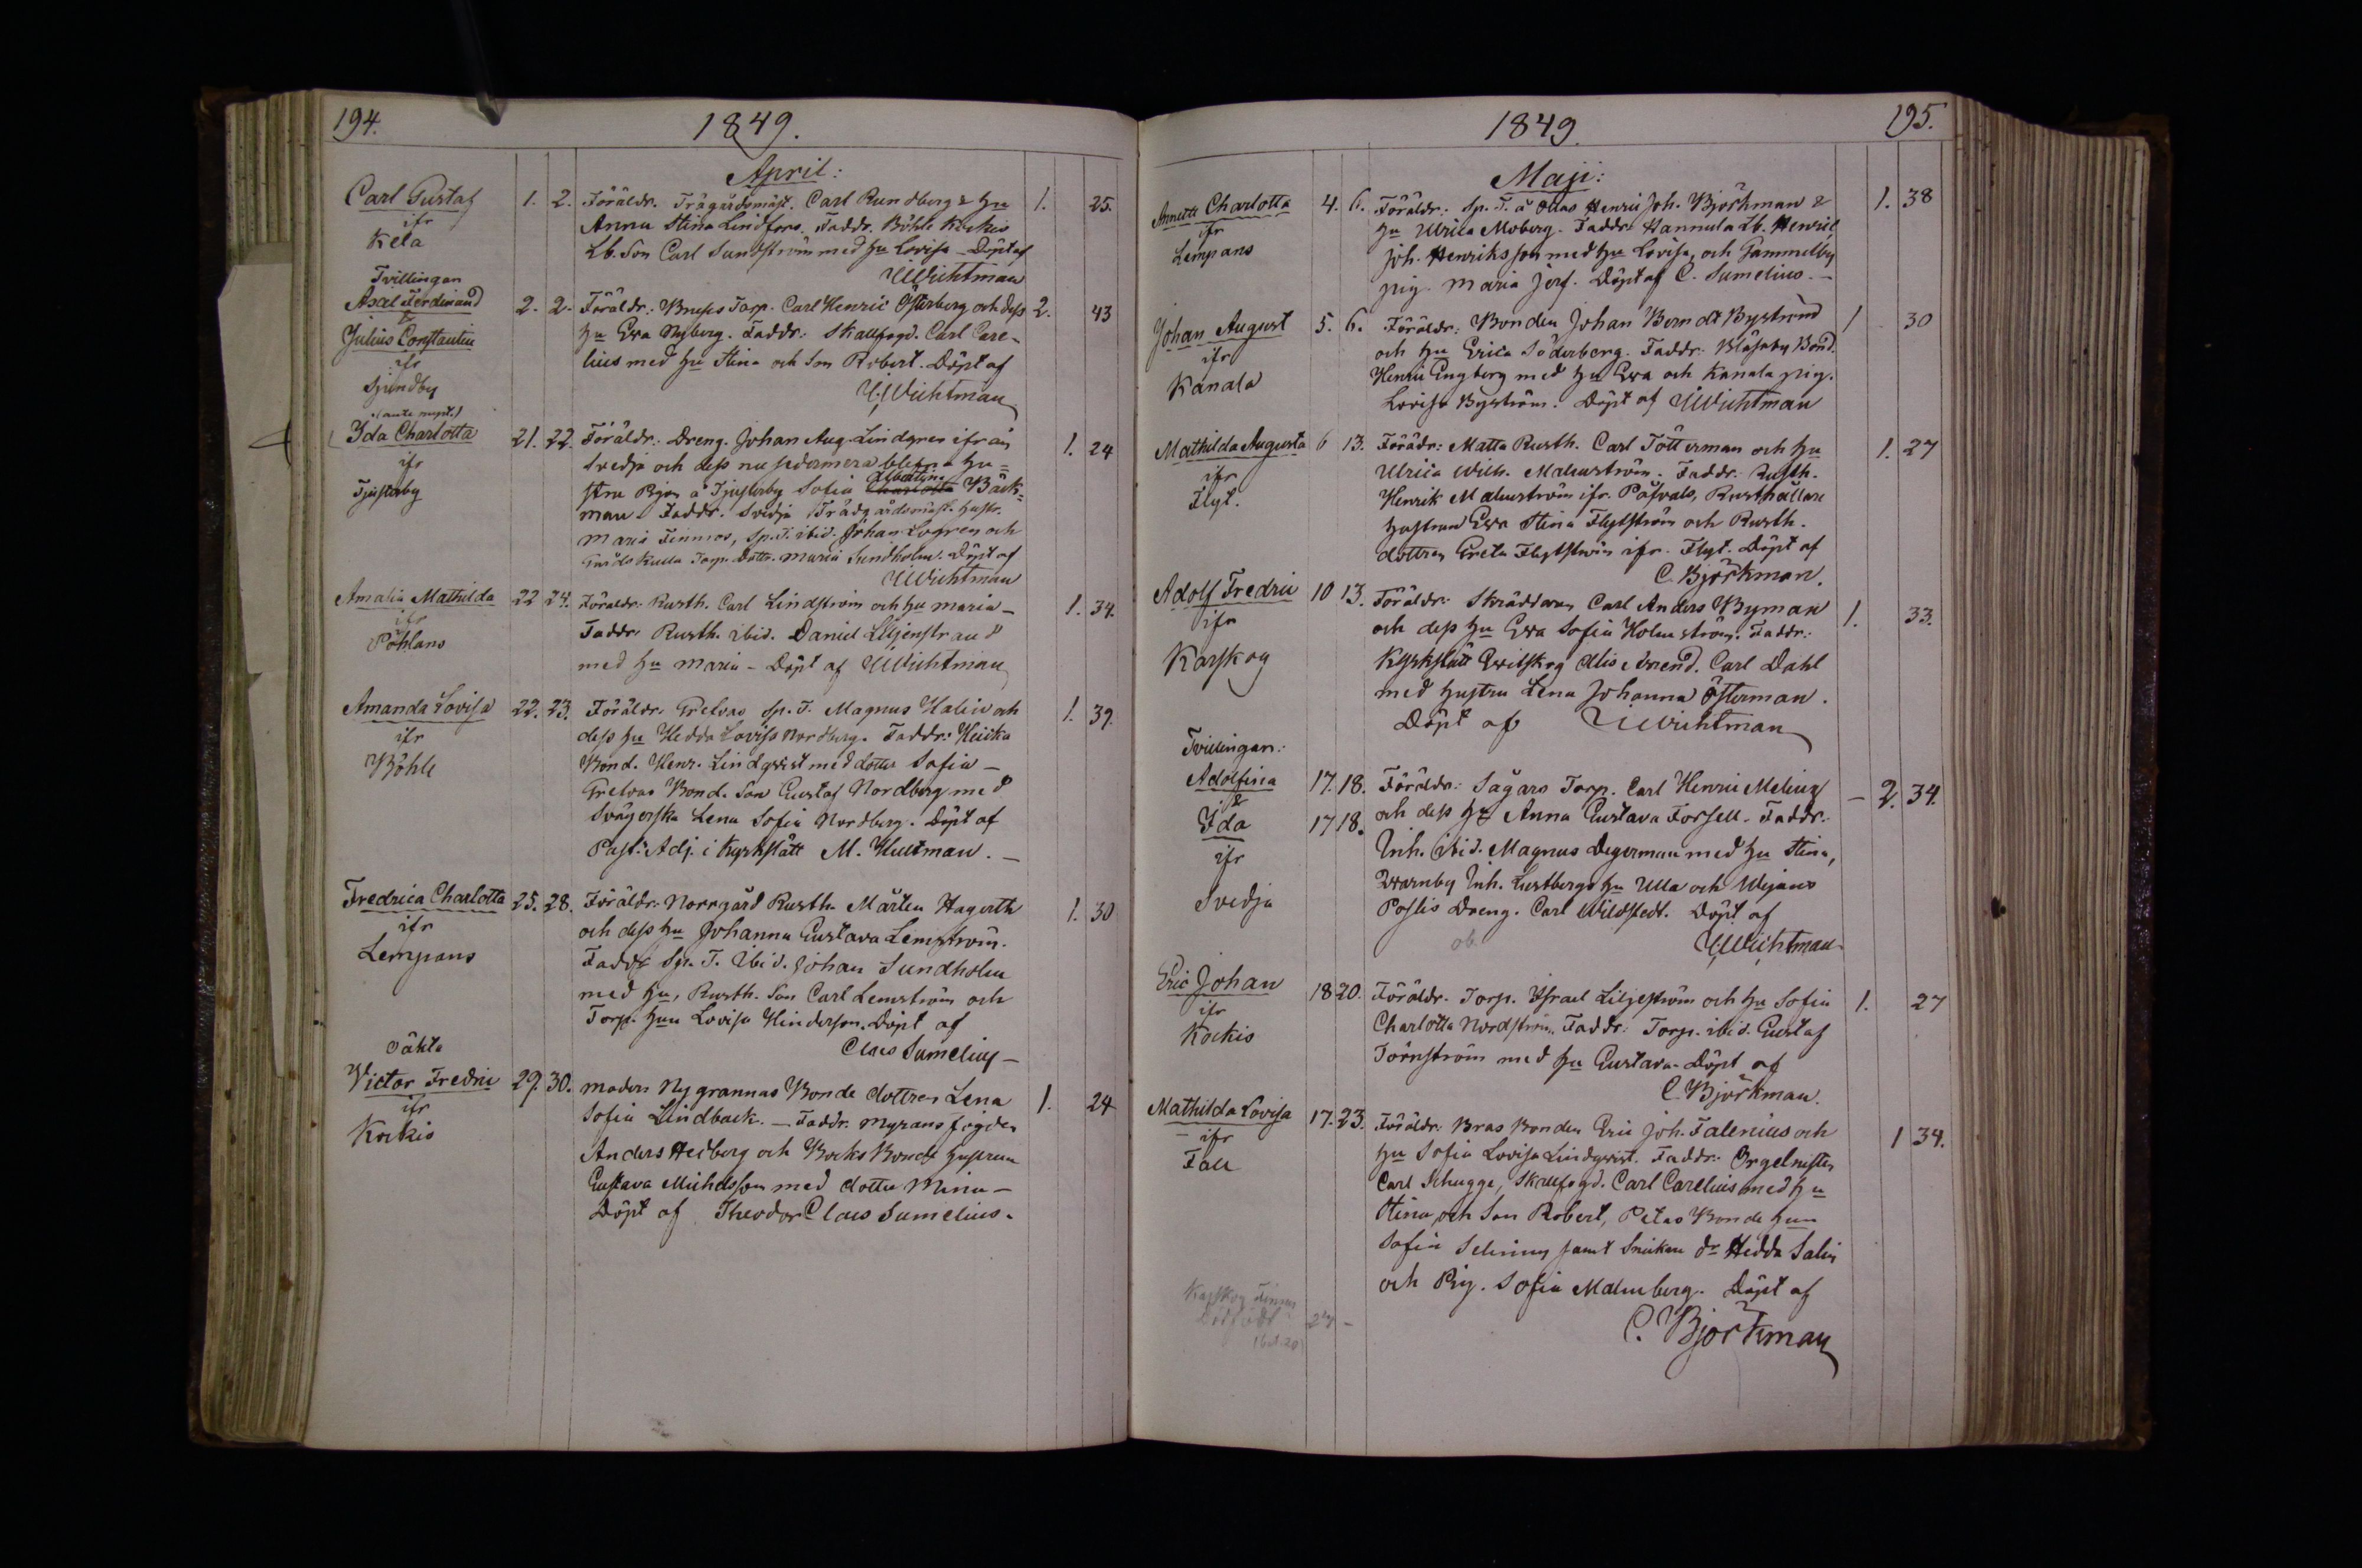 194.
1849.
April:
Carl Gustaf 1. 2. Föräldr. Trägårdsmäst. Carl Rundberg & hu 1. 25.
ifr Anna Stina Lindfors. Faddr. Böhle Kockis
Kela Lb. Son Carl Sundström med hu Lovisa – Döpt af
UWichtman
Tvillingar
Axel Ferdinand 2. 2. Föräldr: Carl Henric Österberg och dess 2. 43
& hu Eva Nyberg. Faddr: Skallfogd. Carl Care-
Julius Constantin lius med hu Stina och Son Robert. Döpt af
ifr UWichtman
Sjundby
(ante nupt.)
Ida Charlotta 21. 22. Föräldr: Dreng. Johan Aug. Lindgren ifrån 1. 24
ifr Svedja och dess nu sedermera blefna hu=
Tjusterby stru Pigan à Tjusterby Sofia Charlotta Bäck=
man. Faddr. Svedja Trädgårdsmäst. hustr.
Maria Finnros, Sp. T. ibid. Johan Logren och
Torp. Dottr. Maria Sundholm. Döpt af
UWichtman
Amalia Mathilda 22 24. Föräldr: Rusth. Carl Lindström och hu Maria – 1. 34.
ifr Faddr. Rusth. ibid. Daniel Liljenstrand
Påhlans med hu Maria – Döpt af UWichtman
Amanda Lovisa 22. 23. Föräldr. Gretvas Sp. T. Magnus Malin och 1. 39.
ifr dess hu Hedda Lovisa Nordberg. Faddr:
Böhle Bond. Henr. Lindqvist med dotter Sofia –
Gretvas Bond. Son Gustaf Nordberg med
Svägerska Lena Sofia Nordberg. Döpt af
Past: Adj. i Kyrkslätt M. Hultman. –
Fredrica Charlotta 25. 28. Föräldr. Norrgård Rusth. Mårten Hagerth 1. 30
ifr och dess hu Johanna Gustava Lemström.
Lempans Faddr Sp. T. Ibid. Johan Sundholm
med hu, Rusth. Son Carl Lemström och
Torp. hun Lovisa Hinderson. Döpt af
Claes Sumelius –
oäkta
Victor Fredric 29. 30. Modern Nygrannas Bonde dottren Lena 1. 24
ifr Sofia Lindback. – Faddr. Myrans fogden
Kockis Anders Hedberg och Bocks Bonde hustrun
Gustava Michelsson med dotter Mina –
Döpt af Theodor Claes Sumelius.
1849.
195.
Maji:
Annette Charlotta 4. 6. Föräldr: Sp. T. å Ollas Henric Joh. Björkman & 1. 38
ifr hu Ulrica Moberg. Faddr: Hannula Lb. Henric
Lempans Joh. Henriksson med hu Lovisa, och Gammelby
pig. Maria Jerf. Döpt af C. Sumelius. –
Johan August 5. 6. Föräldr: Bonden Johan Berndt Byström 1 30
ifr och hu Erica Söderberg. Faddr: Blåsaby Bond.
Kanala Henric Engberg med hu Eva och Kanala pig.
Lovisa Byström. Döpt af UWichtman
Mathilda Augusta 6 13. Föräldr: Matta Rusth. Carl Tötterman och hu 1. 27
ifr Ulrica Wilh. Malmström. Faddr: Rusth.
Flyt. Henrik Malmström ifr. Påfvals, Rusthållare
hustrun Eva Stina Flytström och Rusth.
dottren Greta Flytström ifr. Flyt. Döpt af
C. Björkman.
Adolf Fredric 10 13. Föräldr: Skräddaren Carl Anders Byman 1. 33.
ifr och dess hu Eva Sofia Holmström. Faddr:
Karskog Kyrkslätt Evitskog Arend. Carl Dahl
med hustru Lena Johanna Österman.
Döpt af UWichtman
Tvillingar:
Adolfina 17. 18. Föräldr: Sågars Torp. Carl Henric Melin – 2. 34.
& och dess hu Anna Gustava Forsell. Faddr.
Ida 17 18. Inh. ibid. Magnus Degerman med hu Stina,
ifr Qvarnby Inh. Lustbergs hu Ulla och
Svedja Postis Dreng. Carl Wildstedt. Döpt af
ob. UWichtman
Eric Johan 18 20. Föräldr. Torp. Israel Liljeström och hu Sofia 1. 27
ifr Charlotta Nordström. Faddr: Torp. ibid. Gustaf
Kockis Törnström med hu Gustava – Döpt af
C. Björkman.
Mathilda Lovisa 17. 23. Föräldr: Bras Bonden Eric Joh. Falenius och 1 34.
– ifr hu Sofia Lovisa Lindqvist. Faddr: Orgelnisten
Fall Carl Schugge, Skallfogd. Carl Carelius med hu
Stina och Son Robert, Petas Bonde hun
Sofia Selining samt Snickare dr Hedda Salin
och Pig. Sofia Malmberg. Döpt af
C. Björkman
Karskog
Dödfödt 27 –